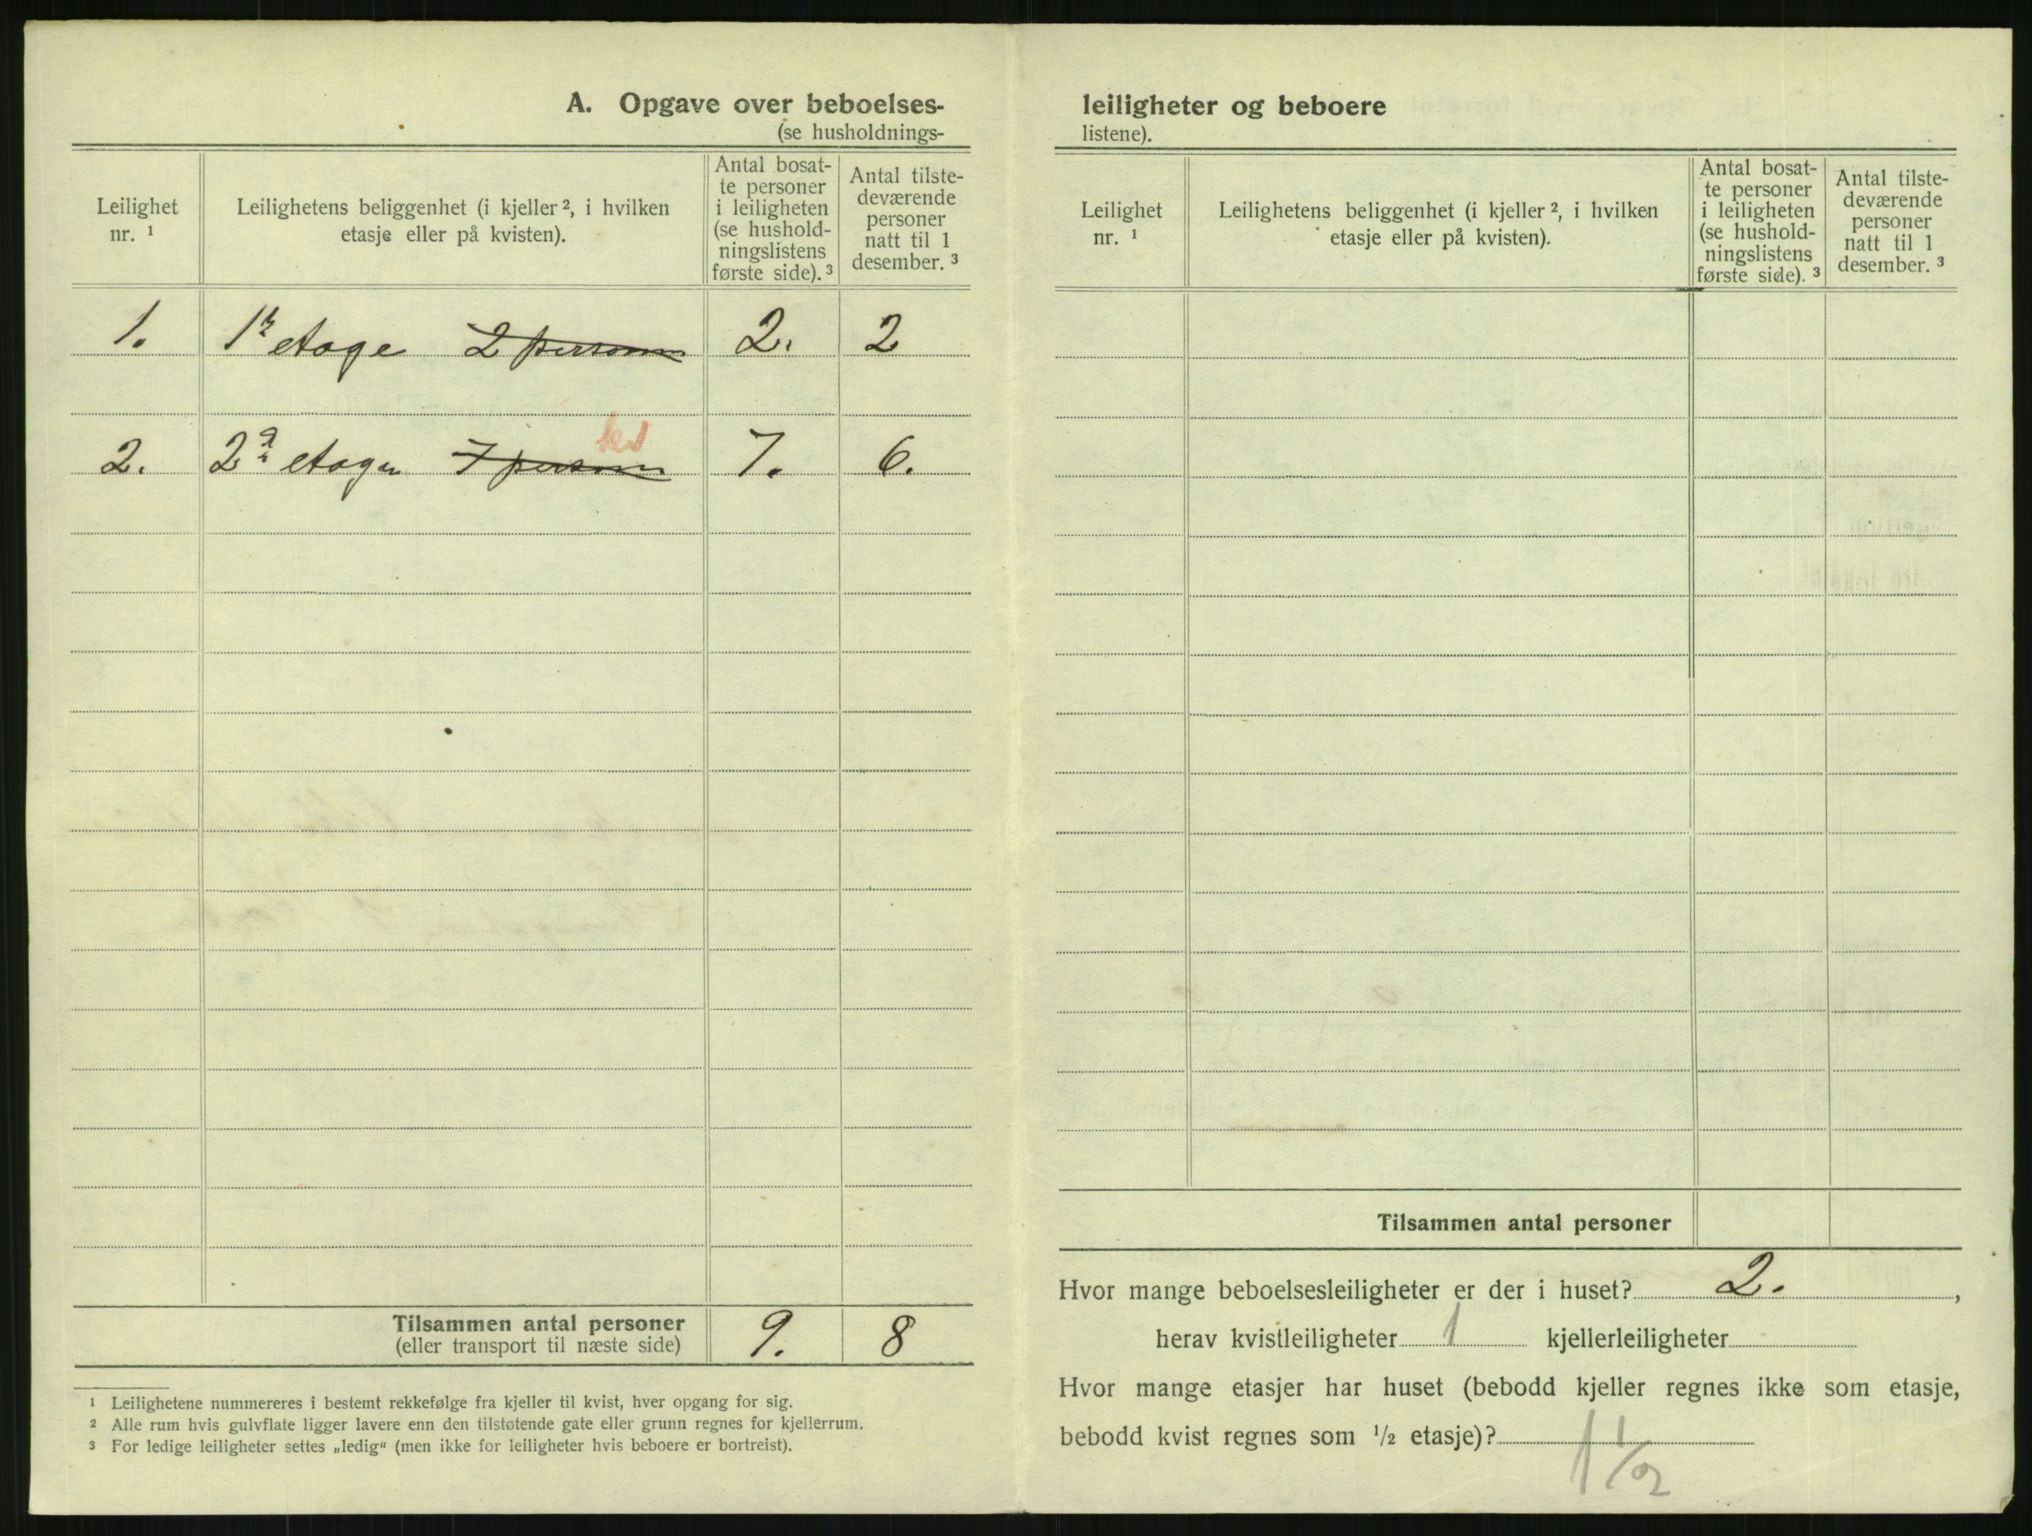 A. Opgave over beboelses-
(se husholdnings-
Leilighet
nr. ¹
Leilighetens beliggenhet (i kjeller ², i hvilken
etasje eller på kvisten).
Antal bosat-
te personer
i leiligheten
(se hushold-
ningslistens
første side). ³
Antal tilste-
deværende
personer
natt til 1
desember. ³
1. 1ste etage 2 person 2. 2
2. 2den etage 7 person 7. 6.
Tilsammen antal personer
(eller transport til næste side)
9. 8
¹ Leilighetene nummereres i bestemt rekkefølge fra kjeller til kvist, hver opgang for sig.
² Alle rum hvis gulvflate ligger lavere enn den tilstøtende gate eller grunn regnes for kjellerrum.
³ For ledige leiligheter settes „ledig“ (men ikke for leiligheter hvis beboere er bortreist).
leiligheter og beboere
listene).
Leilighet
nr. ¹
Leilighetens beliggenhet (i kjeller ², i hvilken
etasje eller på kvisten).
Antal bosat-
te personer
i leiligheten
(se hushold-
ningslistens
første side). ³
Antal tilste-
deværende
personer
natt til 1
desember. ³
Tilsammen antal personer
Hvor mange beboelsesleiligheter er der i huset? 2. ,
herav kvistleiligheter 1 kjellerleiligheter
Hvor mange etasjer har huset (bebodd kjeller regnes ikke som etasje,
bebodd kvist regnes som ½ etasje)?
1 1/2